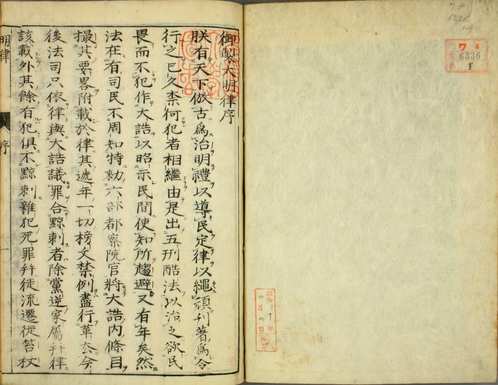 御製大明律序
朕有天下倣古爲治明禮以導民定律以繩頑刊著爲令
行之已久柰何犯者相繼由是出五刑酷法以治之欲民
畏而不犯作大誥以昭示民間使知所趨避又有年矣然
法在有司民不周知特勅六部都察院官將大誥内條目
撮其要畧附載於律其遞年一切榜文禁例盡行革去今
後法司只依律與大誥議罪合黥刺者除黨逆家屬幷律
該載外其餘有犯俱不黥刺雜犯死罪幷徒流遷徙笞杖
明律 序 一
6336